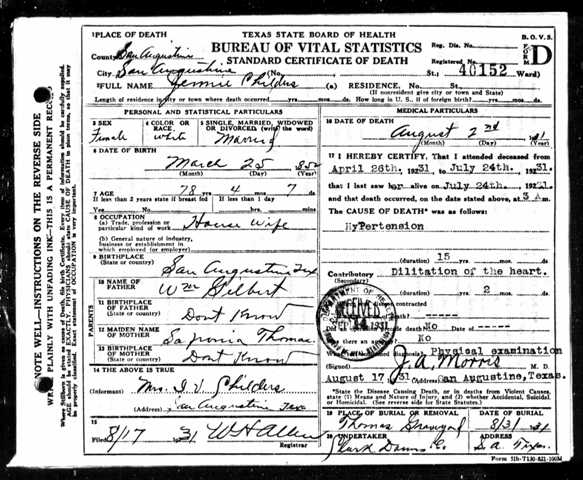 TEXAS STATE BOARD OF HEALTH
BUREAU OF VITAL STATISTICS
STANDARD CERTIFICATE OF DEATH
B. O. V. S.
FORM D
1 PLACE OF DEATH
County San Augustine
City San Augustine (No.
Reg. Dis. No.
Registered No.
St.; 40152 Ward)
2 FULL NAME Jennie Childers (a) RESIDENCE. No. St.
(If nonresident give city or town and State)
Length of residence in city or town where death occurred yrs. mos. ds. How long in U. S., if of foreign birth? yrs. mos. ds.
PERSONAL AND STATISTICAL PARTICULARS
3 SEX
Female
4 COLOR OR RACE.
White
5 SINGLE, MARRIED, WIDOWED OR DIVORCED (write the word)
Married
6 DATE OF BIRTH
March 25 852
(Month) (Day) (Year)
7 AGE
78 4 7
Yrs. Mos. ds.
If less than 2 years state if breast fed If less than 1 day
Yes No hrs. min.
8 OCCUPATION
(a) Trade, profession or particular kind of work House wife
(b) General nature of industry, business or establishment in which employed (or employer)
9 BIRTHPLACE
(State or country) San Augustine Tex
PARENTS
10 NAME OF FATHER Wm Gilbert
11 BIRTHPLACE OF FATHER
(State or country) Dont Know
12 MAIDEN NAME OF MOTHER Thomas
13 BIRTHPLACE OF MOTHER
(State or country) Dont Know
14 THE ABOVE IS TRUE
Mrs. I V Childers
(Address) San Augustine Tex
15
Filed 8/17 1931 W H Allen
Registrar
MEDICAL PARTICULARS
16 DATE OF DEATH
August 2nd 31
(Month) (Day) (Year)
17 I HEREBY CERTIFY, That I attended deceased from
April 26th. 1931, to July 24th. , 1931.
that I last saw her alive on July 24th. , 1931.
and that death occurred, on the date stated above, at 3 A m.
The CAUSE OF DEATH was as follows:
HyPertension
(duration) 15 yrs. mos. ds.
Contributory Dilitation of the heart.
(Secondary)
(duration) 2 mos. ds.
contracted
-----
death? No Date of -----
there an No
Physical examination
(Signed) J. A. Morris M. D.
August 17, 31 (Address) San Augustine, Texas.
*State the Disease Causing Death, or in deaths from Violent Causes, state (1) Means and Nature of Injury, and (2) whether Accidental, Suicidal, or Homicidal. (See reverse side for State Statutes.)
19 PLACE OF BURIAL OR REMOVAL DATE OF BURIAL
Thomas 8/3/31
20 UNDERTAKER ADDRESS
Clark Downs Co. S. A. Texas
DEPARTMENT OF HEALTH
RECEIVED
SEP 14 1931
NOTE WELL—INSTRUCTIONS ON THE REVERSE SIDE
WRITE PLAINLY WITH UNFADING INK—THIS IS A PERMANENT RECORD